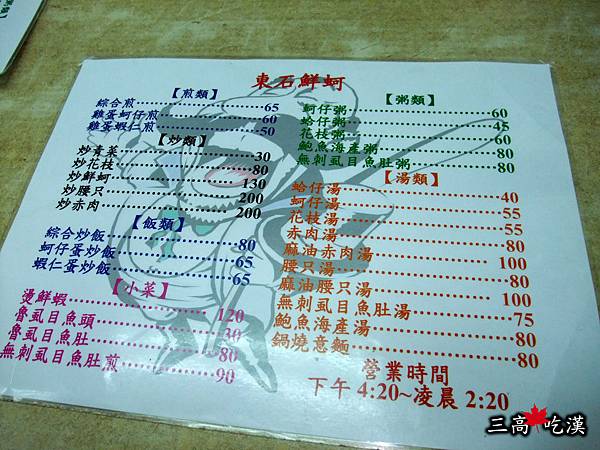 東石鮮蚵
【煎類】
綜合煎…65
雞蛋蚵仔煎…60
雞蛋蝦仁煎…50
【炒類】
炒青菜…30
炒花枝…80
炒鮮蚵…130
炒腰只…200
炒赤肉…200
【飯類】
綜合炒飯…80
蚵仔蛋炒飯…65
蝦仁蛋炒飯…65
【小菜】
燙鮮蝦…120
魯虱目魚頭…30
魯虱目魚肚…80
無刺虱目魚肚煎…90
【粥類】
蚵仔粥…60
蛤仔粥…45
花枝粥…60
鮑魚海產粥…80
無刺虱目魚肚粥…80
【湯類】
蛤仔湯…40
蚵仔湯…55
花枝湯…55
赤肉湯…80
麻油赤肉湯…100
腰只湯…80
麻油腰只湯…100
無刺虱目魚肚湯…75
鮑魚海產湯…80
鍋燒意麵…80
營業時間
下午 4:20~凌晨 2:20
三高 吃漢